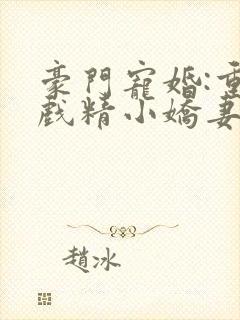 豪門寵婚:重
戲精小嬌妻
趙冰